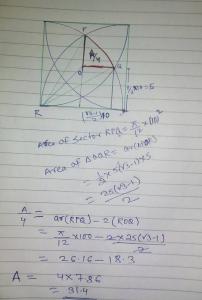 P
A/4
O
Q
5
R
Area of sector RPQ = π/12 ×(10)²
Area of ΔOQR =
= 1/2 × 5(√3-1)×5
= 25(√3-1)/2
A/4 = ar(RPQ) - 2(ROQ)
= π/12 ×100 - 2×25(√3-1)/2
= 26.16 - 18.3
A = 4×7.86
= 31.4